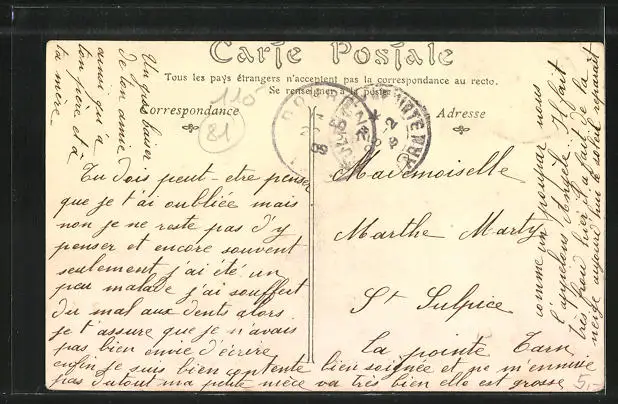 Carte Postale
Tous les pays étrangers n'acceptent pas la correspondance au recto.
Se renseigner à la poste
Correspondance
Adresse
110
81
Tu dois peut-etre penser
que je t'ai oubliée mais
non je ne reste pas d'y
penser et encore souvent
seulement j'ai été un
peu malade j'ai souffert
du mal aux dents alors
je t'assure que je n'avais
pas bien envie d'écrire
enfin je suis bien contente bien soignée et ne m'ennuie
pas du tout ma petite nièce va très bien elle est grosse
comme un
nous
l'appelons Angèle. Il fait
très froid hier il a fait de la
neige aujourd'hui le soleil reparait
Un gros baiser
de ton amie
ainsi qu'à
ton père et à
ta mère.
Mademoiselle
Marthe Marty
St Sulpice
La pointe Tarn
5,-